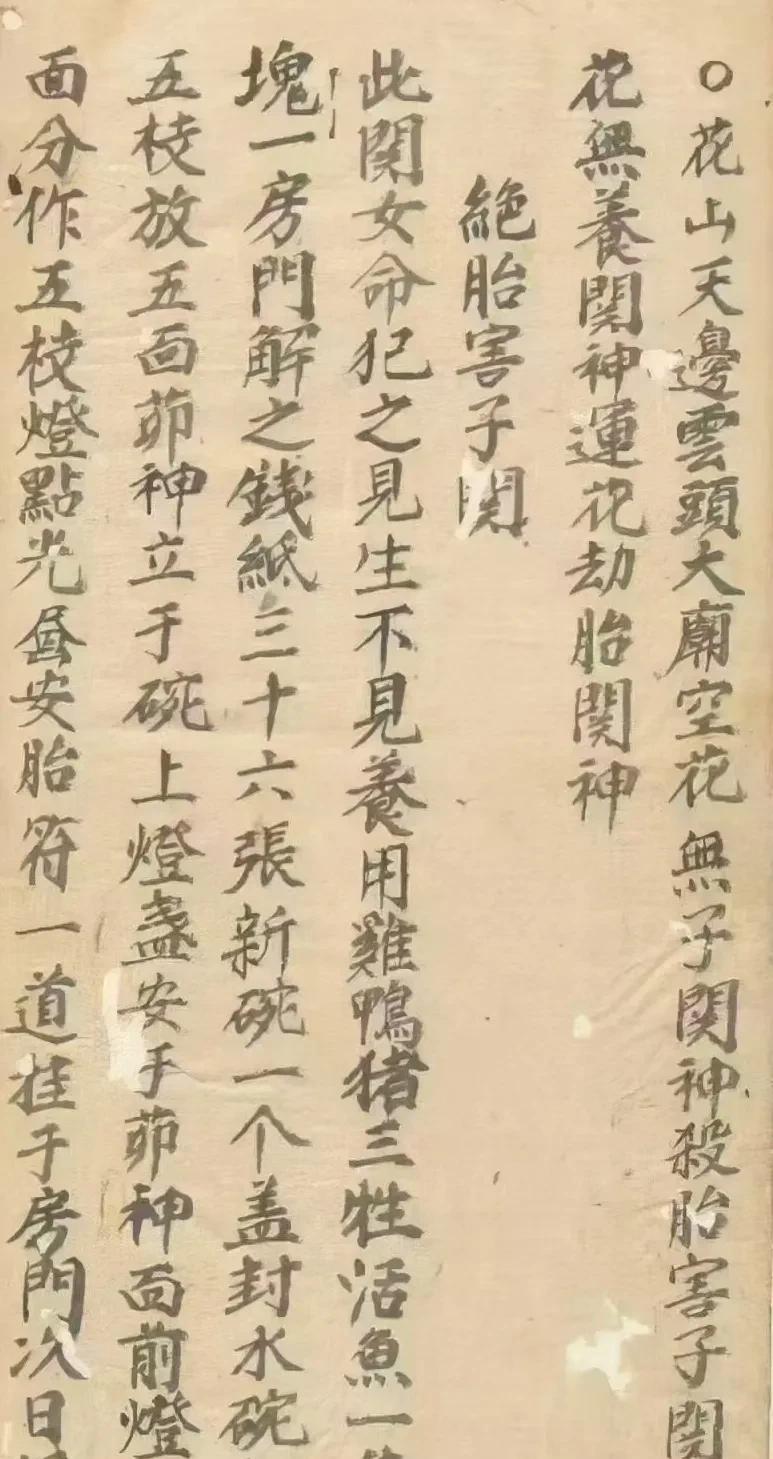 ○花山天邊雲頭大廟空花無子関神殺胎害子関
花無養関神運花劫胎関神
絶胎害子関
此関女命犯之見生不見養用雞鴨猪三牲活魚一
塊一房門解之錢紙三十六張新碗一个盖封水碗
五枝放五面茆神立于碗上燈盞安于茆神面前燈
面分作五枝燈點光畣安胎符一道挂于房門次日